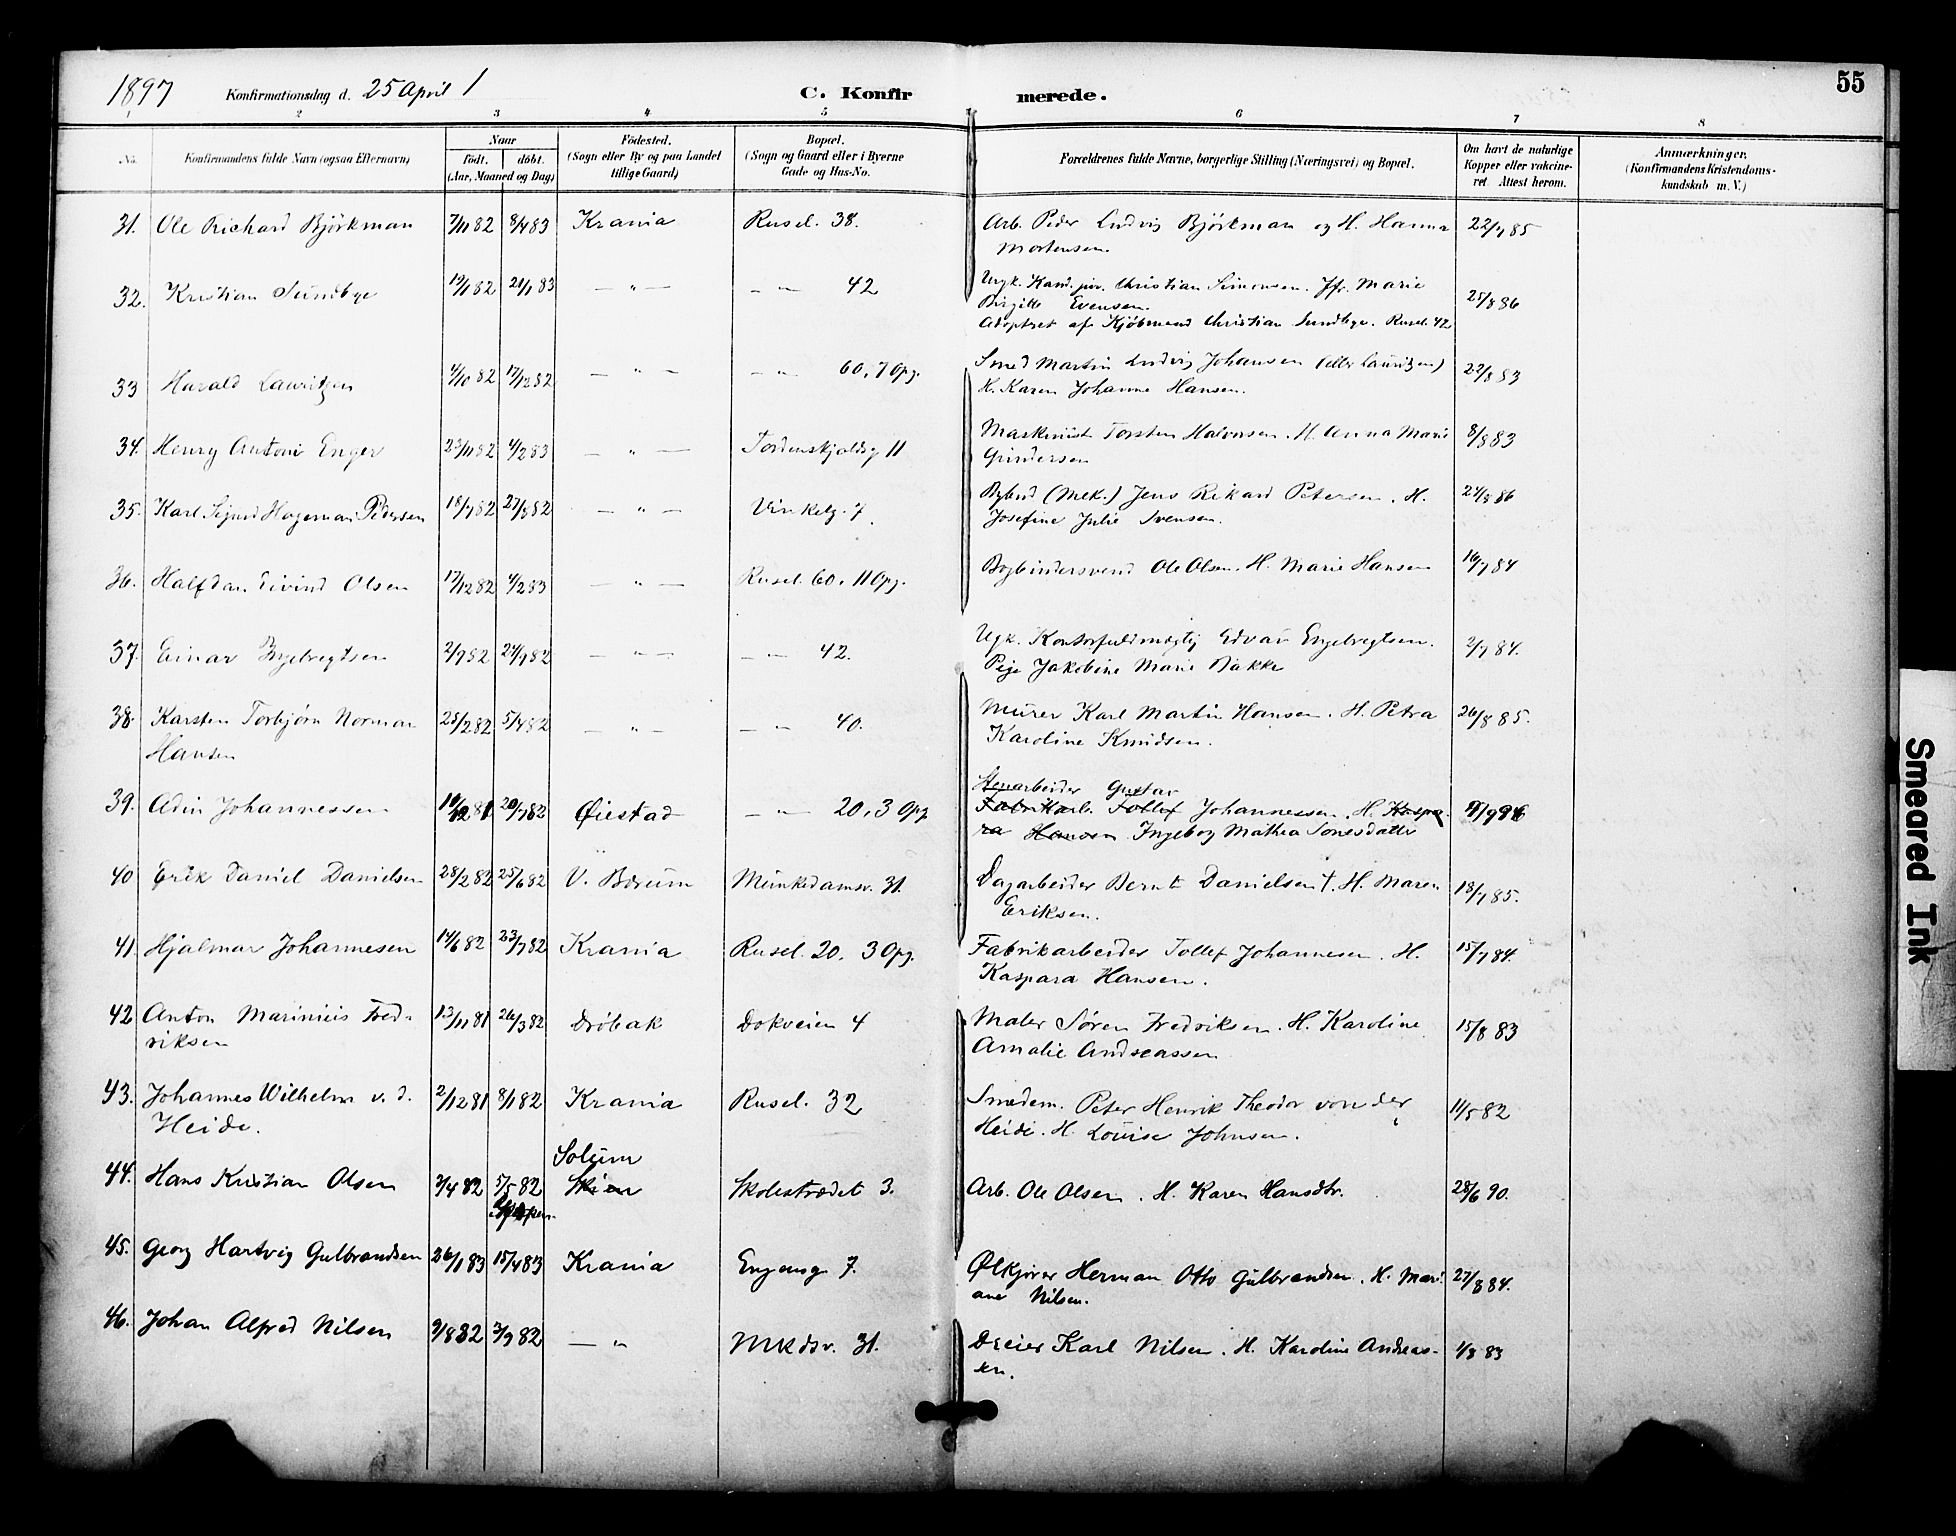 1897 Konfirmationsdag d. 25 April 1 C. Konfir merede. 55
1 2 3 4 5 6 7 8
No. Konfirmandens fulde Navn (ogsaa Efternavn) Naar födt. döbt. (Aar, Maaned og Dag) Födested. (Sogn eller By og paa Landet tillige Gaard) Bopæl. (Sogn og Gaard eller i Byerne Gade og Hus-No. Forældrenes fulde Navne, borgerlige Stilling (Næringsvei) og Bopæl. Om havt de naturlige Kopper eller vakcineret Attest herom. Anmærkninger. (Konfirmandens Kristendomskundskab m. V.)
31. Ole Richard Björkman 7/11 82 8/4 83 Krania Rusel. 38. Arb. Peder Ludvig Björkman og H. Hanna 22/7 85
Mortensen
32. Kristian Sundbye 19/1 82 21/1 83 — " — — " — 42 Ugk. Kand. jur. Christian Simonsen. Jfr. Marie
Birgitte Evensen. 25/8 86
Adoptret af Kjöbmand Christian Sundbye. Rusel. 42
33 Harald Lauritzen 4/10 82 17/12 82 — " — — " — 60, 7 Opg. Smed Martin Ludvig Johansen (eller Lauritzen) 22/8 83
H. Karen Johanne Hansen.
34. Henry Antoni Enger 23/11 82 4/2 83 — " — Tordenskjoldsg 11 Maskinist Torsten Halvorsen. H. Anna Marie 8/8 83
Gundersen
35. Karl Sigurd Hageman Pedersen 18/7 82 27/8 82 — " — Vinkelg. 7. Bybud (Mek.) Jens Rikard Petersen. H. 24/8 86
Josefine Julie Svensen.
36. Halfdan Eivind Olsen 17/12 82 4/2 83 — " — Rusel. 60. 11 Opg. Bogbindersvend Ole Olsen. H. Marie Hansen 16/7 84
37. Einar Ingebregtsen 2/7 82 24/9 82 — " — — " — 42. Ugk. Kontorfuldmægtig Edvar Engebregtsen. 2/7 84.
Pige Jakobine Marie Bakke
38. Karsten Torbjörn Norman 25/2 82 5/4 82 — " — — " — 40. Murer Karl Martin Hansen. H. Petra 26/8 85.
Hansen Karoline Knudsen.
39. Adin Johannessen 10/12 81 20/7 82 Øiestad — " — 20, 3 Opg Stenarbeider Gustav
Fabrikarb. Tollef Johannessen. H. Kaspa-
ra Hansen Ingeborg Mathea Tonesdatter
40 Erik Daniel Danielsen 28/2 82 25/6 82 V. Bærum Munkedamsv. 31. Dagarbeider Bernt Danielsen †. H. Maren 18/7 85.
Eriksen.
41. Hjalmar Johannesen 14/6 82 23/7 82 Krania Rusel. 20. 3 Opg. Fabrikarbeider Tollef Johannesen. H. 15/7 84.
Kaspara Hansen.
42 Anton Marinius Fred- 13/11 81 26/3 82 Dröbak Dokveien 4 Maler Søren Fredriksen. H. Karoline 15/8 83
riksen Amalie Andreassen
43. Johannes Wilhelm v. d. 2/12 81 8/1 82 Krania Rusel. 32 Smedem. Peter Henrik Theodor von der 11/5 82
Heide. Heide. H. Louise Johnsen.
44. Hans Kristian Olsen 3/4 82 5/5 82 Solum Skien Skolestrædet 3. Arb. Ole Olsen. H. Karen Hansdtr. 28/6 90.
45. Georg Hartvig Gulbrandsen 26/1 83 15/4 83 Krania Engensg 7. Ølkjører Herman Otto Gulbrandsen. H. Mari- 27/8 84.
ane Nilsen.
46. Johan Alfred Nilsen 9/8 82 3/9 82 — " Mkdsv. 31. Dreier Karl Nilsen. H. Karoline Andreas- 1/3 83
en.
Smeared Ink